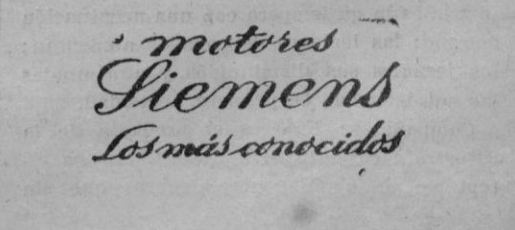 motores
Siemens
Los más conocidos